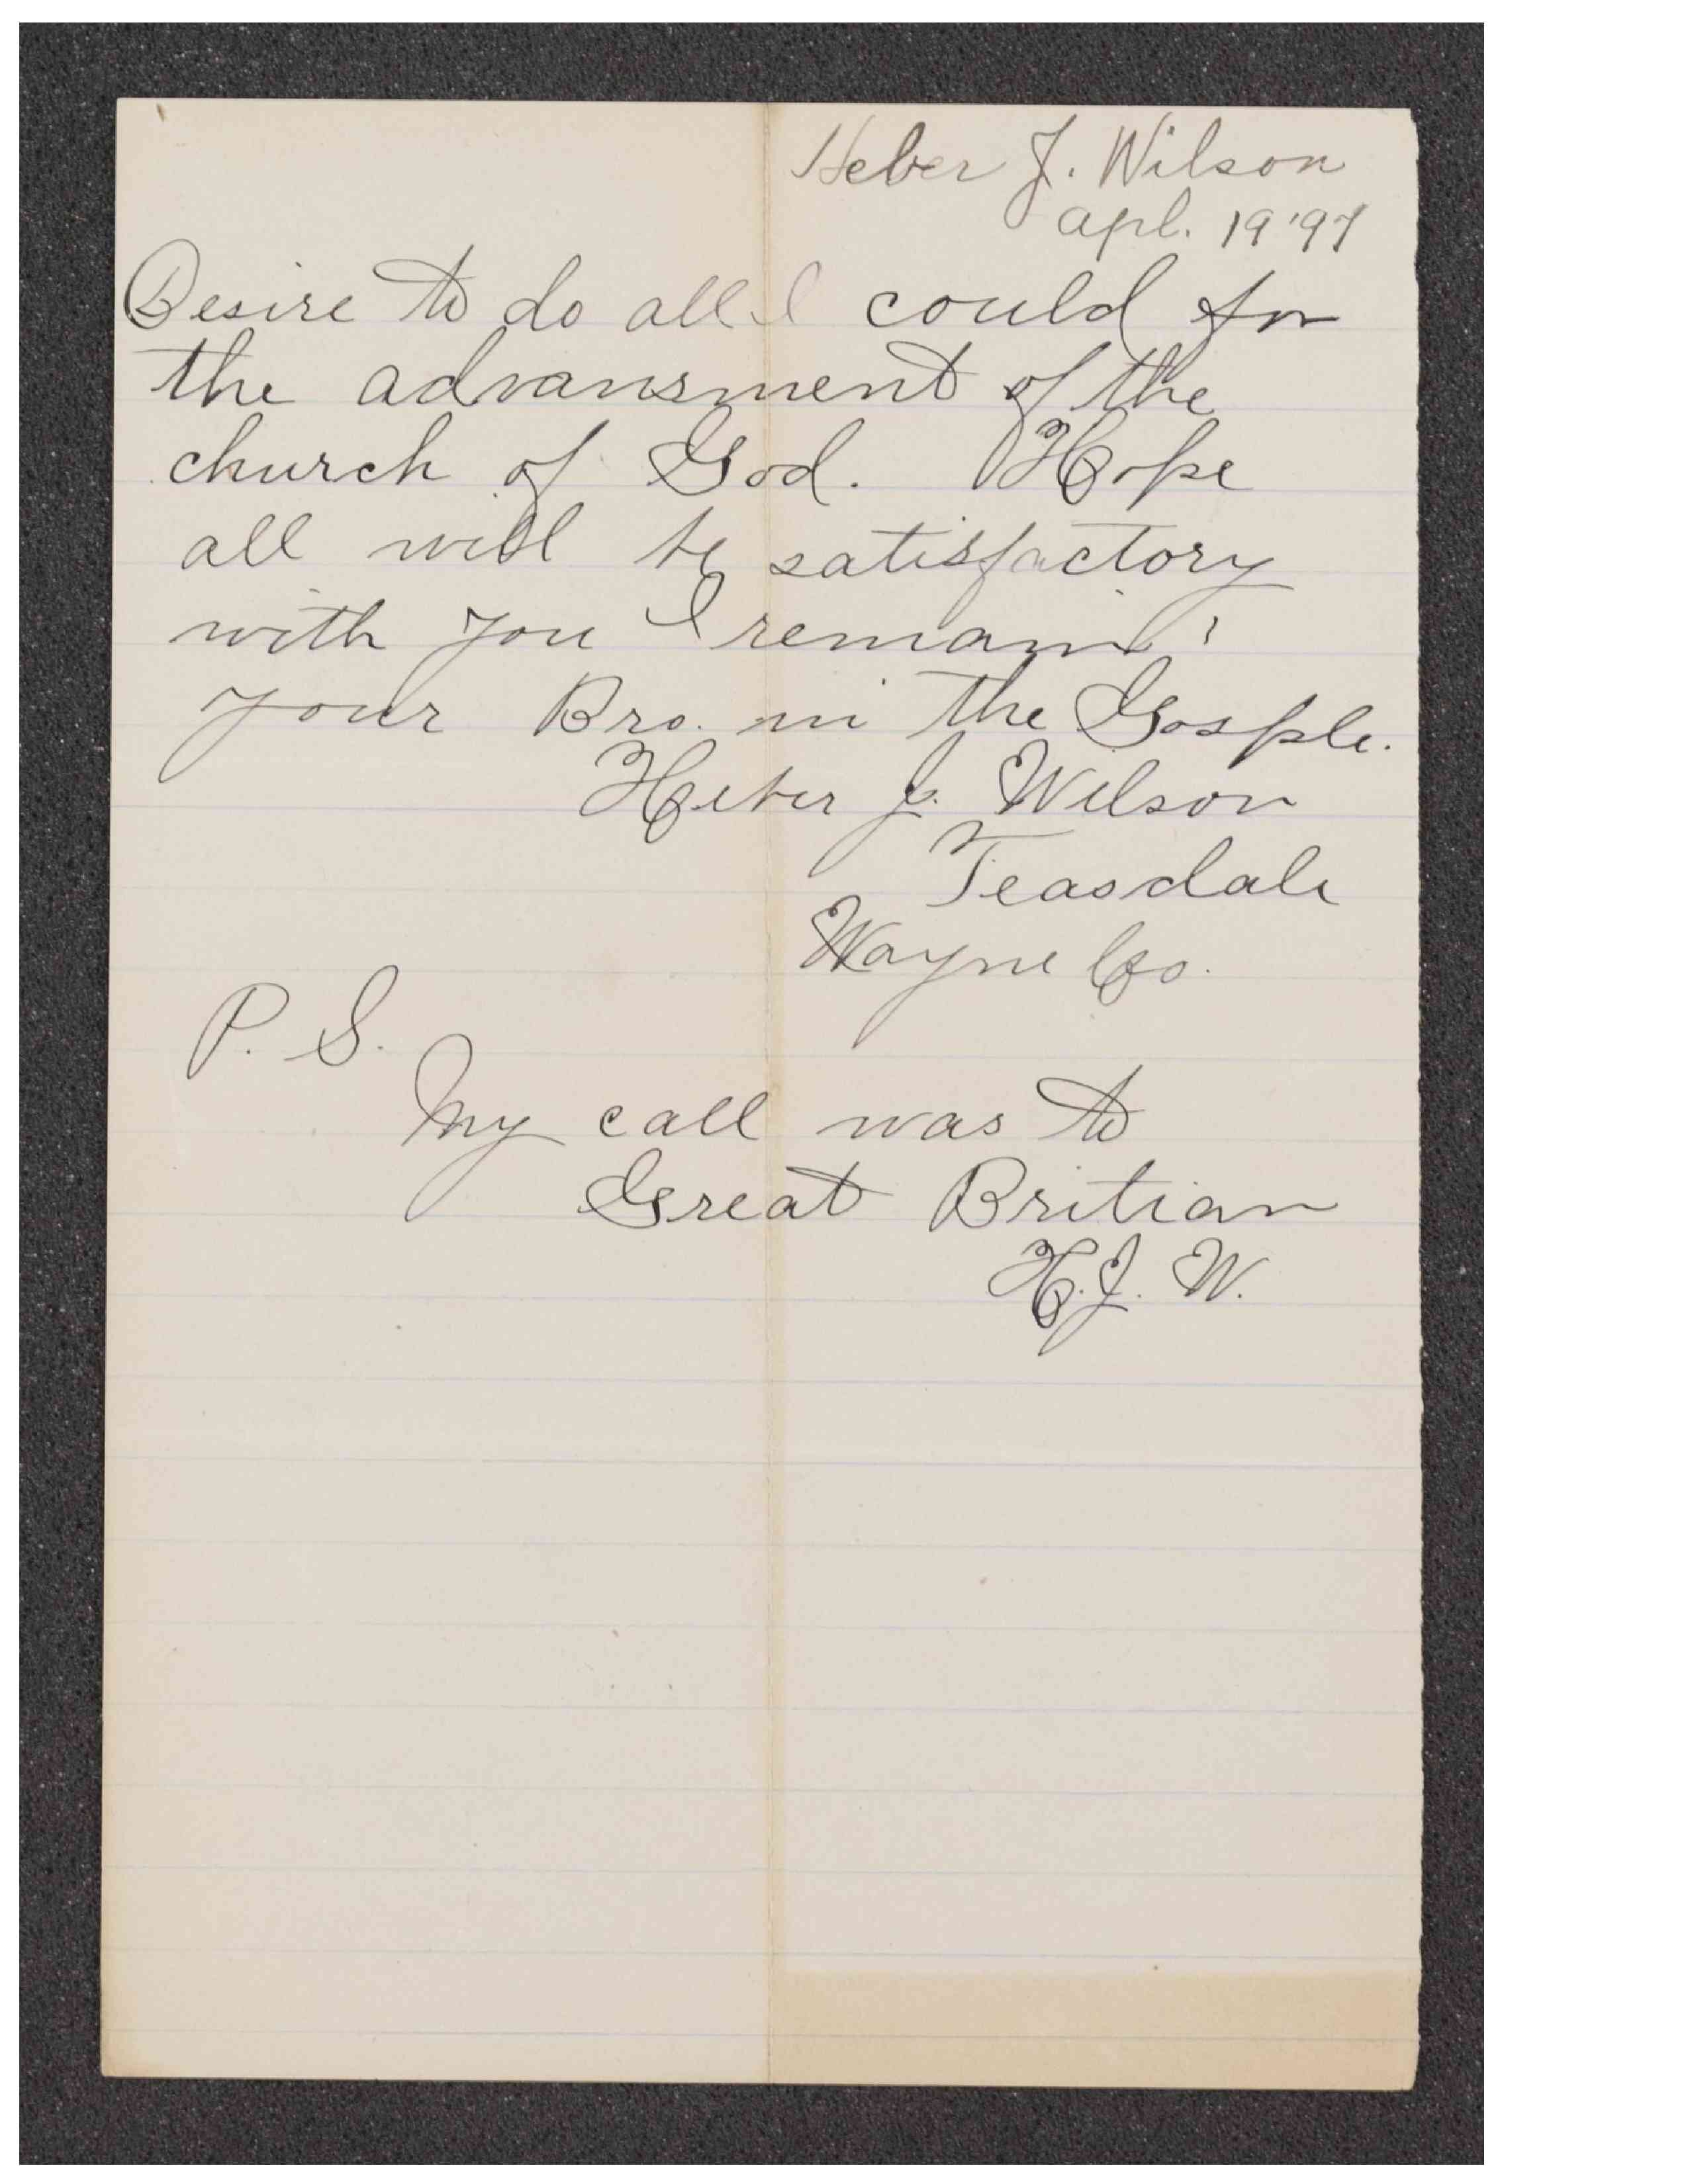 Heber J. Wilson
Apl. 19 '97
Desire to do all I could for
the advansment of the
church of God. Hope
all will be satisfactory
with you I remain;
your Bro. in the Gosple.
Heber J. Wilson
Teasdale
Wayne Co.
P. S.
My call was to
Great Britian
H. J. W.